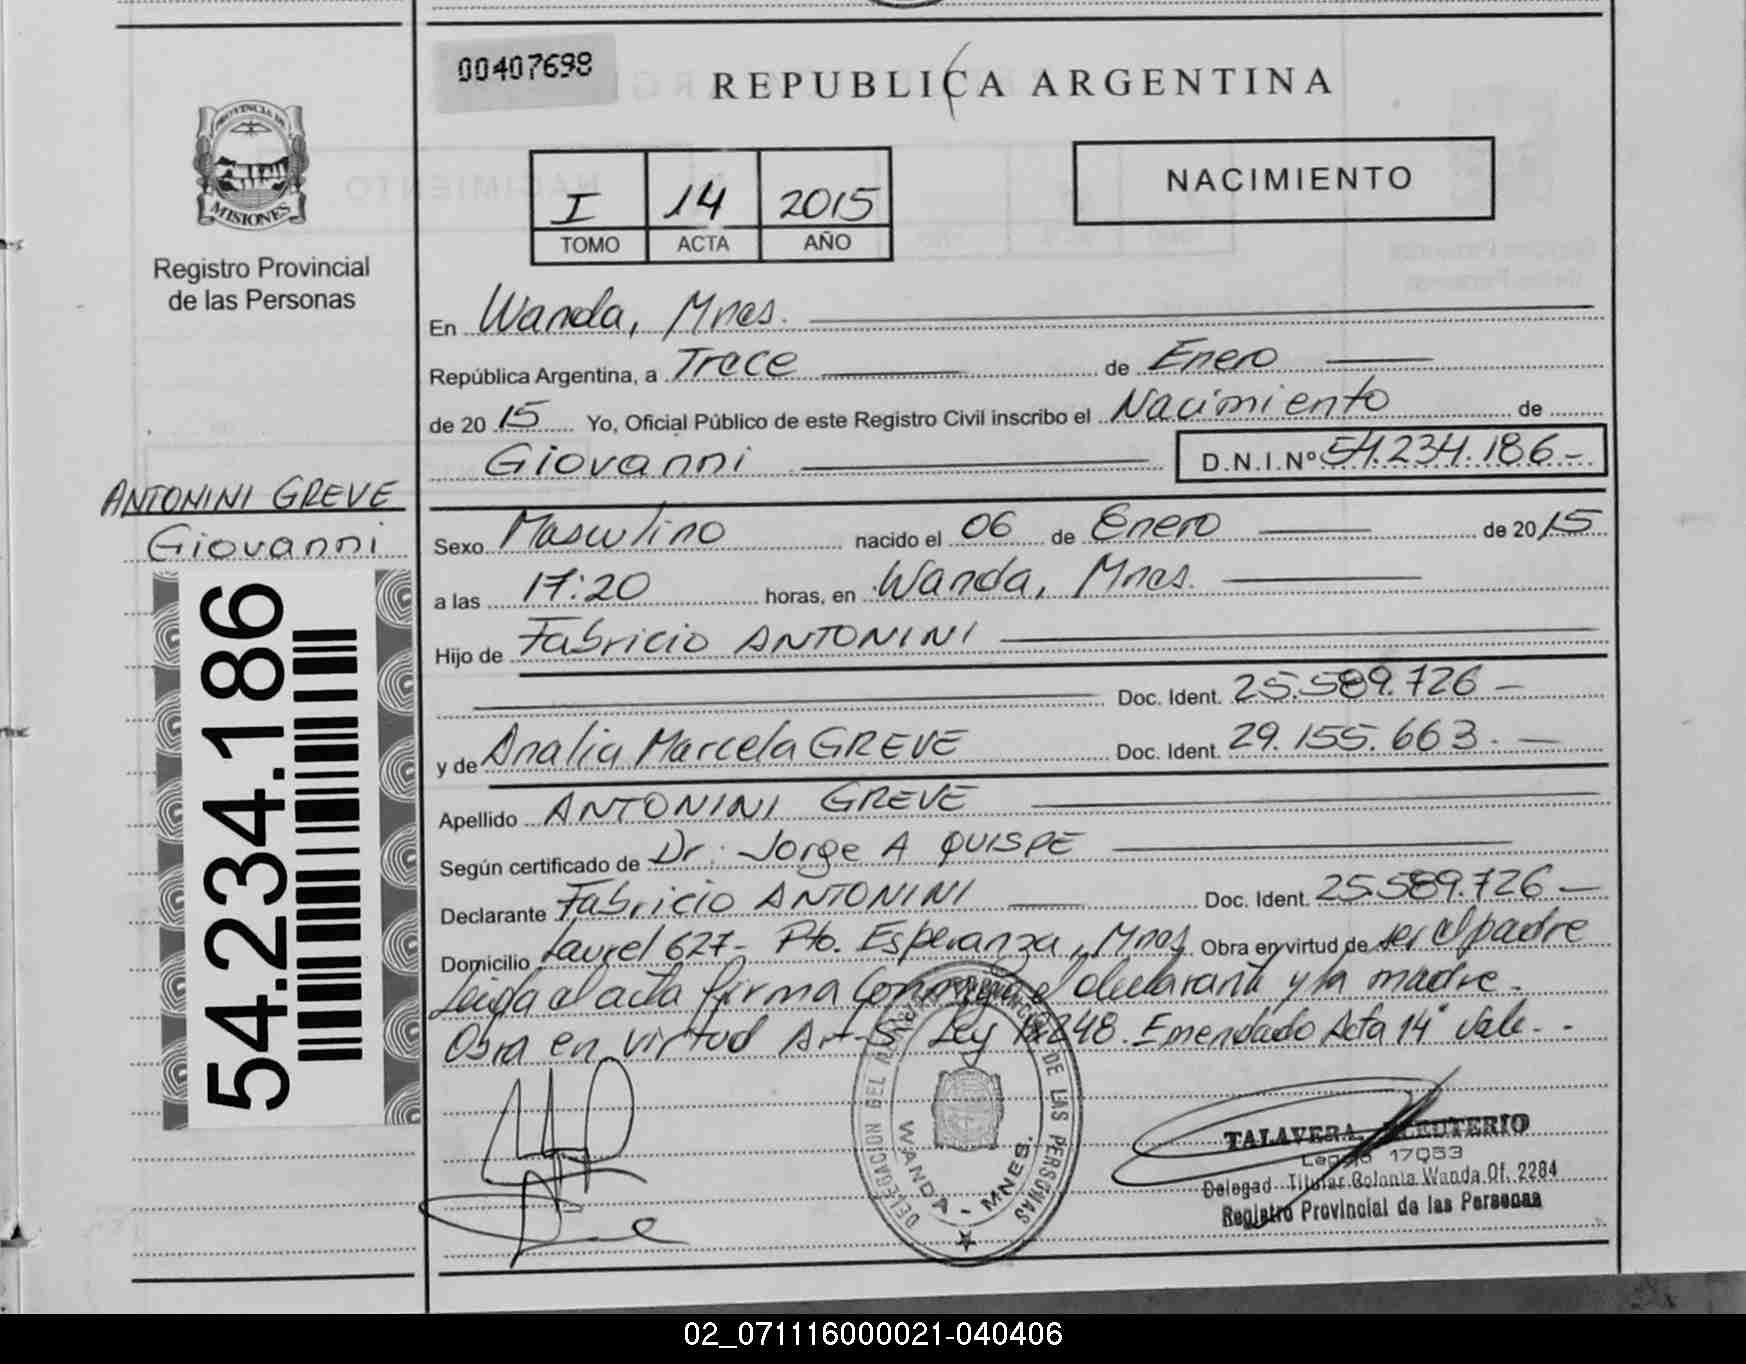 00407698
REPUBLICA ARGENTINA
PROVINCIA DE
MISIONES
Registro Provincial
de las Personas
I 14 2015
TOMO ACTA AÑO
NACIMIENTO
En Wanda, Mnes.
República Argentina, a Trece de Enero
de 20 15 Yo, Oficial Público de este Registro Civil inscribo el Nacimiento de
Giovanni D.N.I.Nº 54.234.186.-
ANTONINI GREVE
Giovanni
54.234.186
Sexo Masculino nacido el 06 de Enero de 20 15
a las 17:20 horas, en Wanda, Mnes.
Hijo de Fabricio ANTONINI
Doc. Ident. 25.589.726 -
y de Analia Marcela GREVE Doc. Ident. 29.155.663. -
Apellido ANTONINI GREVE
Según certificado de Dr. Jorge A QUISPE
Declarante Fabricio ANTONINI Doc. Ident. 25.589.726 -
Domicilio Laurel 627- Pto. Esperanza, Mnes. Obra en virtud de ser el padre
Leida el acta firma conmigo el declarante y la madre.
Obra en virtud Art. 5 Ley 18248. Emendado Acta 14" Vale. -
DE LAS PERSONAS
DELEGACION
WANDA - MNES.
TALAVERA, ELEUTERIO
Legajo 17053
Delegad. Titular Colonia Wanda Of. 2284
Registro Provincial de las Personas
02_071116000021-040406